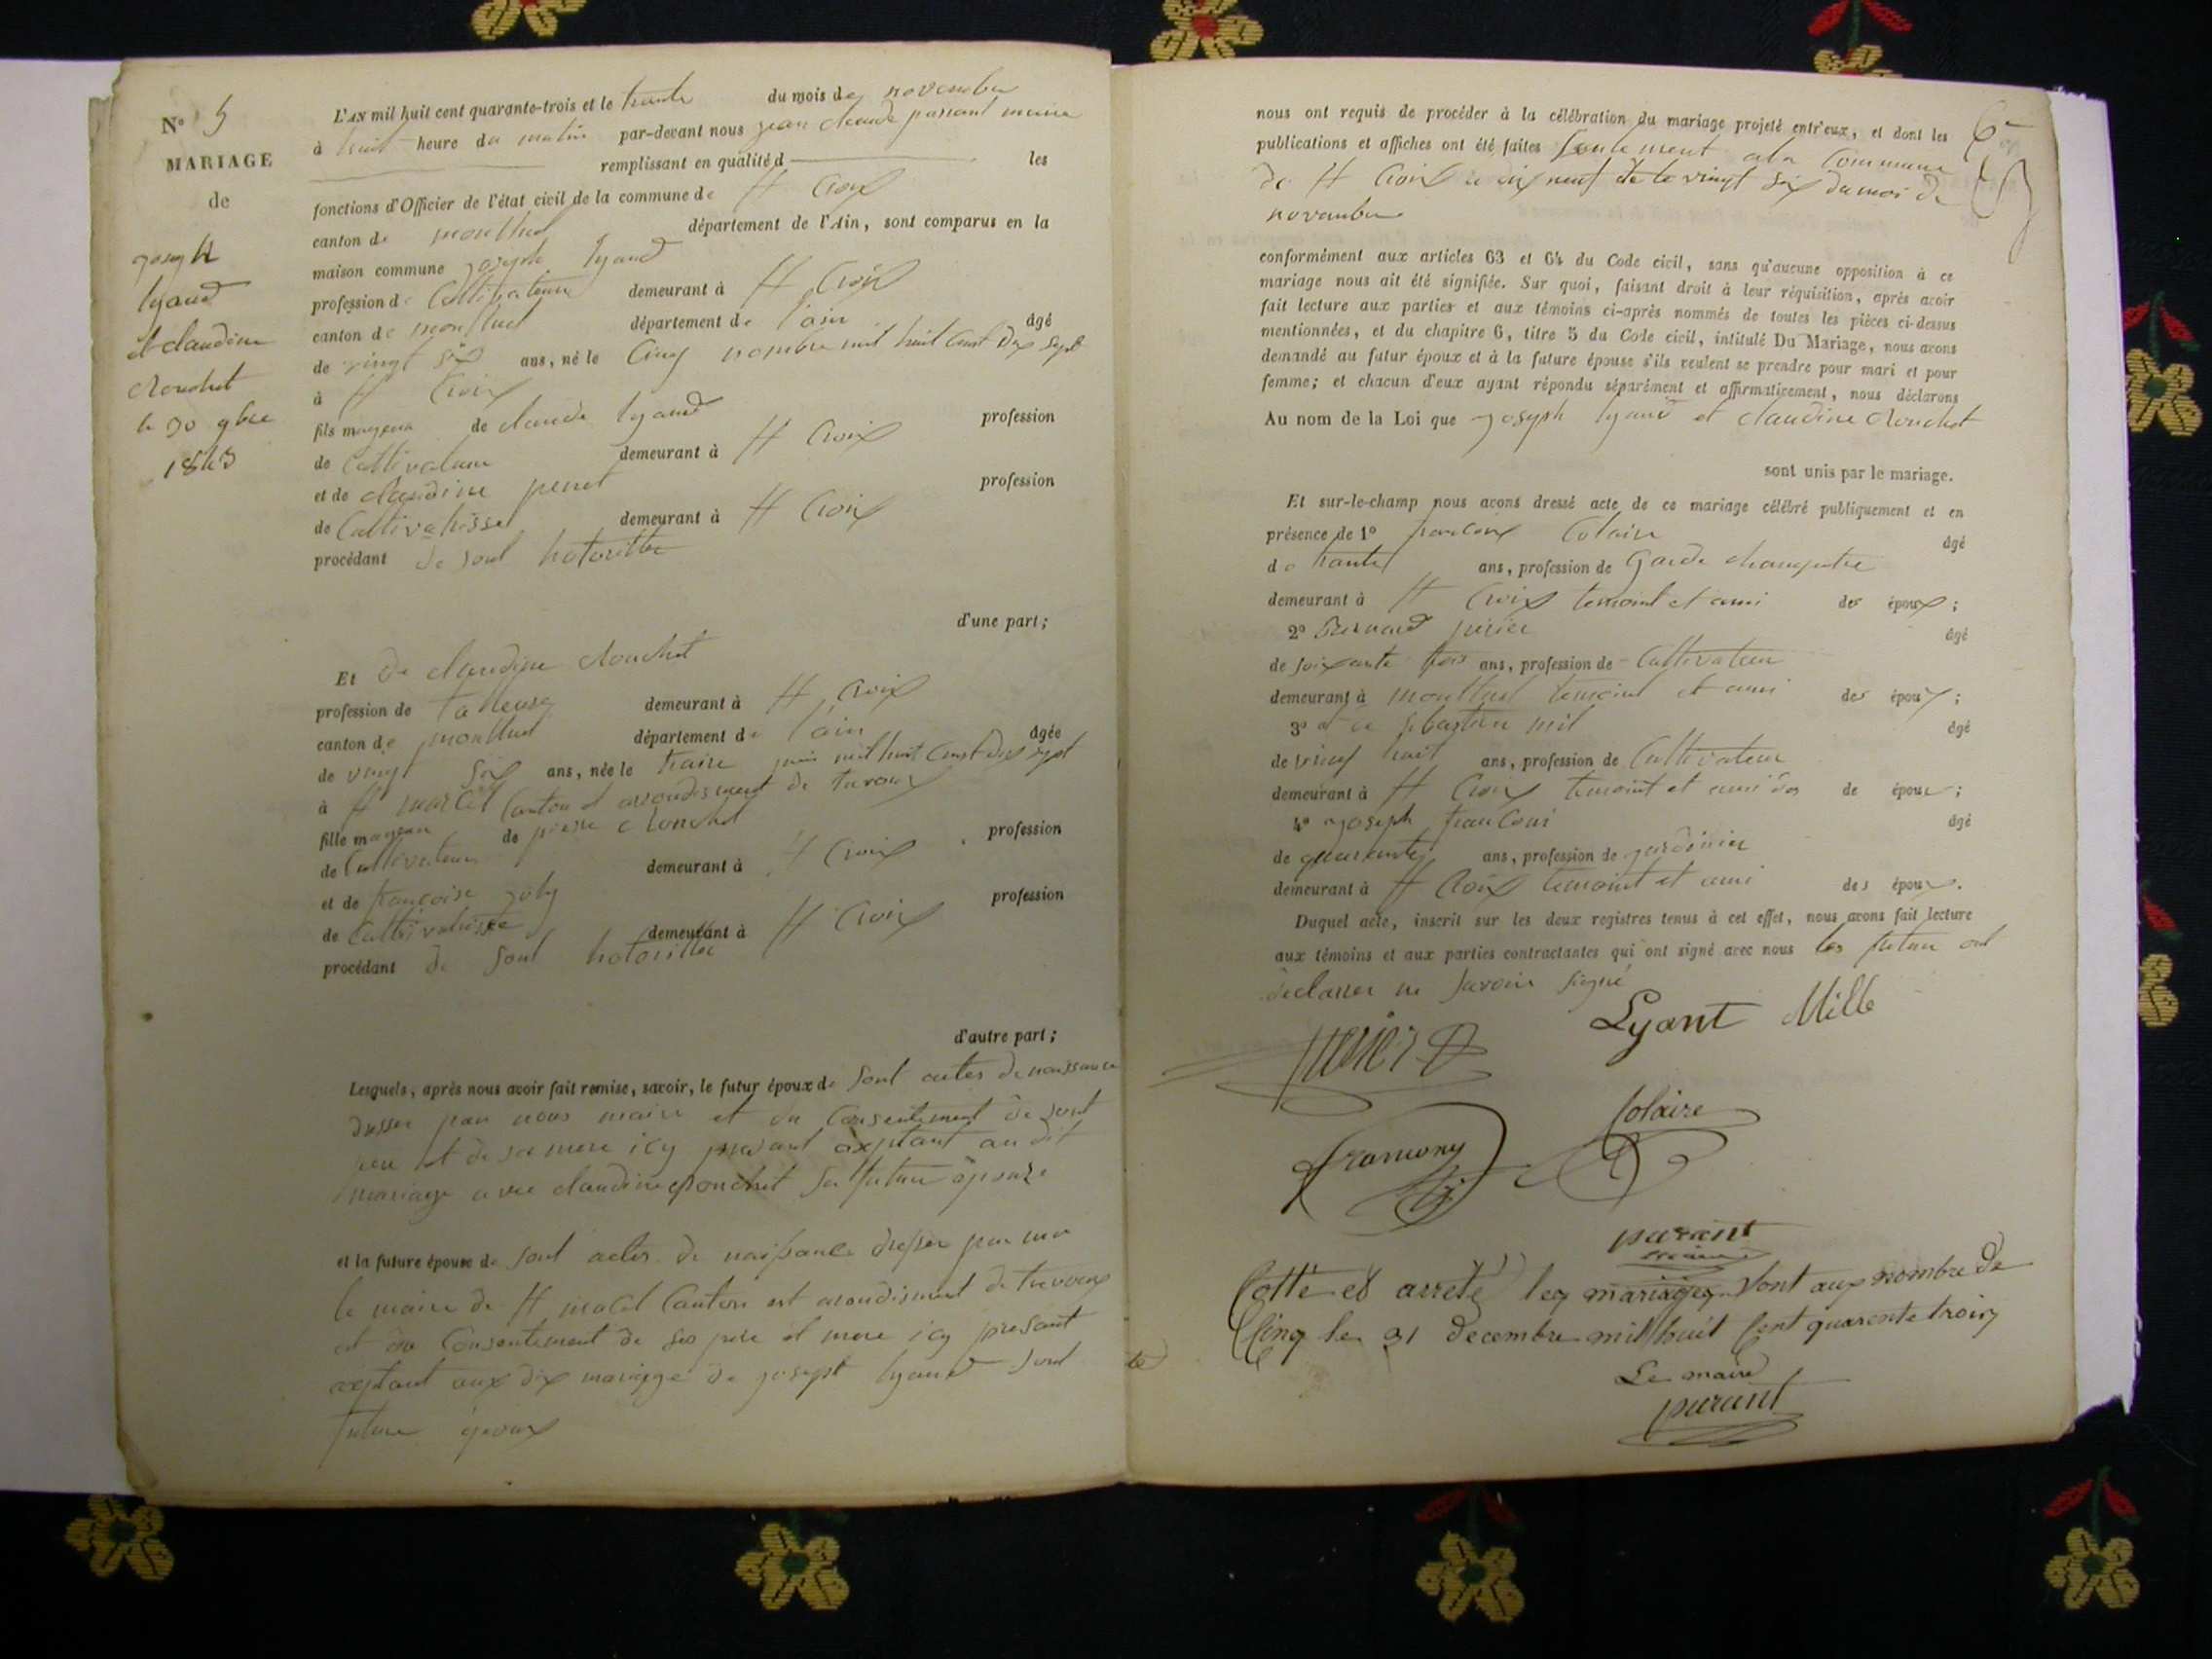 N° 5
MARIAGE
de
joseph
lyand
et claudine
clonchet
le 30 9bre
1843
L'AN mil huit cent quarante-trois et le trante du mois de novembre
à huit heure du matin par-devant nous jean claude parrant maire
remplissant en qualité d les
fonctions d'Officier de l'état civil de la commune de St Croix
canton de montluel département de l'Ain, sont comparus en la
maison commune joseph lyand
profession de Cultivateur demeurant à St Croix
canton de montluel département de lain âgé
de vingt six ans, né le Cinq nombre mil huit Cent Dix sept
à St Croix
fils mageur de claude lyand profession
de Cultivateur demeurant à St Croix
et de claudine perret profession
de Cultivatrisse demeurant à St Croix
procédant de sont hotoritter
d'une part;
Et De claudine clonchet
profession de demeurant à St Croix
canton de montluel département de lain âgée
de vingt six ans, née le traize juin mil huit Cent dix sept
à St marcel Canton et arondisment de
fille mageur de pierre clonchet profession
de Cultivateur demeurant à St Croix
et de francoise joly profession
de Cultivatrisse demeurant à St Croix
procédant de sont hotoritter
d'autre part;
Lesquels, après nous avoir fait remise, savoir, le futur époux de sont actes de naissance
dresser par nous maire et du Consentement de sont
pere et de sa mere icy presant axeptant au dit
mariage avec claudine clonchet sa future épouse
et la future épouse de sont actes de naissance dresser par
le maire de St marcel Canton est arondisment de
et du Consentement de ses pere et mere icy presant
axeptant aux dix mariage de joseph lyand sont
future époux
nous ont requis de procéder à la célébration du mariage projeté entr'eux, et dont les
publications et affiches ont été faites seulement ala Commune
de St Croix le dix neuf et le vingt six du moi de
novembre
conformément aux articles 63 et 64 du Code civil, sans qu'aucune opposition à ce
mariage nous ait été signifiée. Sur quoi, faisant droit à leur réquisition, après avoir
fait lecture aux parties et aux témoins ci-après nommés de toutes les pièces ci-dessus
mentionnées, et du chapitre 6, titre 5 du Code civil, intitulé Du Mariage, nous avons
demandé au futur époux et à la future épouse s'ils veulent se prendre pour mari et pour
femme; et chacun d'eux ayant répondu séparément et affirmativement, nous déclarons
Au nom de la Loi que joseph lyand et claudine clonchet
sont unis par le mariage.
Et sur-le-champ nous avons dressé acte de ce mariage célébré publiquement et en
présence de 1° Colaire âgé
de trante ans, profession de Garde champetre
demeurant à St Croix temoint et ami des époux;
2° Bernard perier âgé
de soixante trois ans, profession de Cultivateur
demeurant à montluel temoint et ami des époux;
3° et de sebastien mil âgé
de huit ans, profession de Cultivateur
demeurant à St Croix temoint et ami des de époux;
4° joseph âgé
de quarante ans, profession de jardinier
demeurant à St Croix temoint et ami des époux.
Duquel acte, inscrit sur les deux registres tenus à cet effet, nous avons fait lecture
aux témoins et aux parties contractantes qui ont signé avec nous les future ont
declarer ne savoir signé
perier
Lyant Mille
Colaire
parant
maire
Cotté et arreté les mariages sont aux nombre de
Cinq le 31 decembre mil huit Cent quarente trois
Le maire
parant